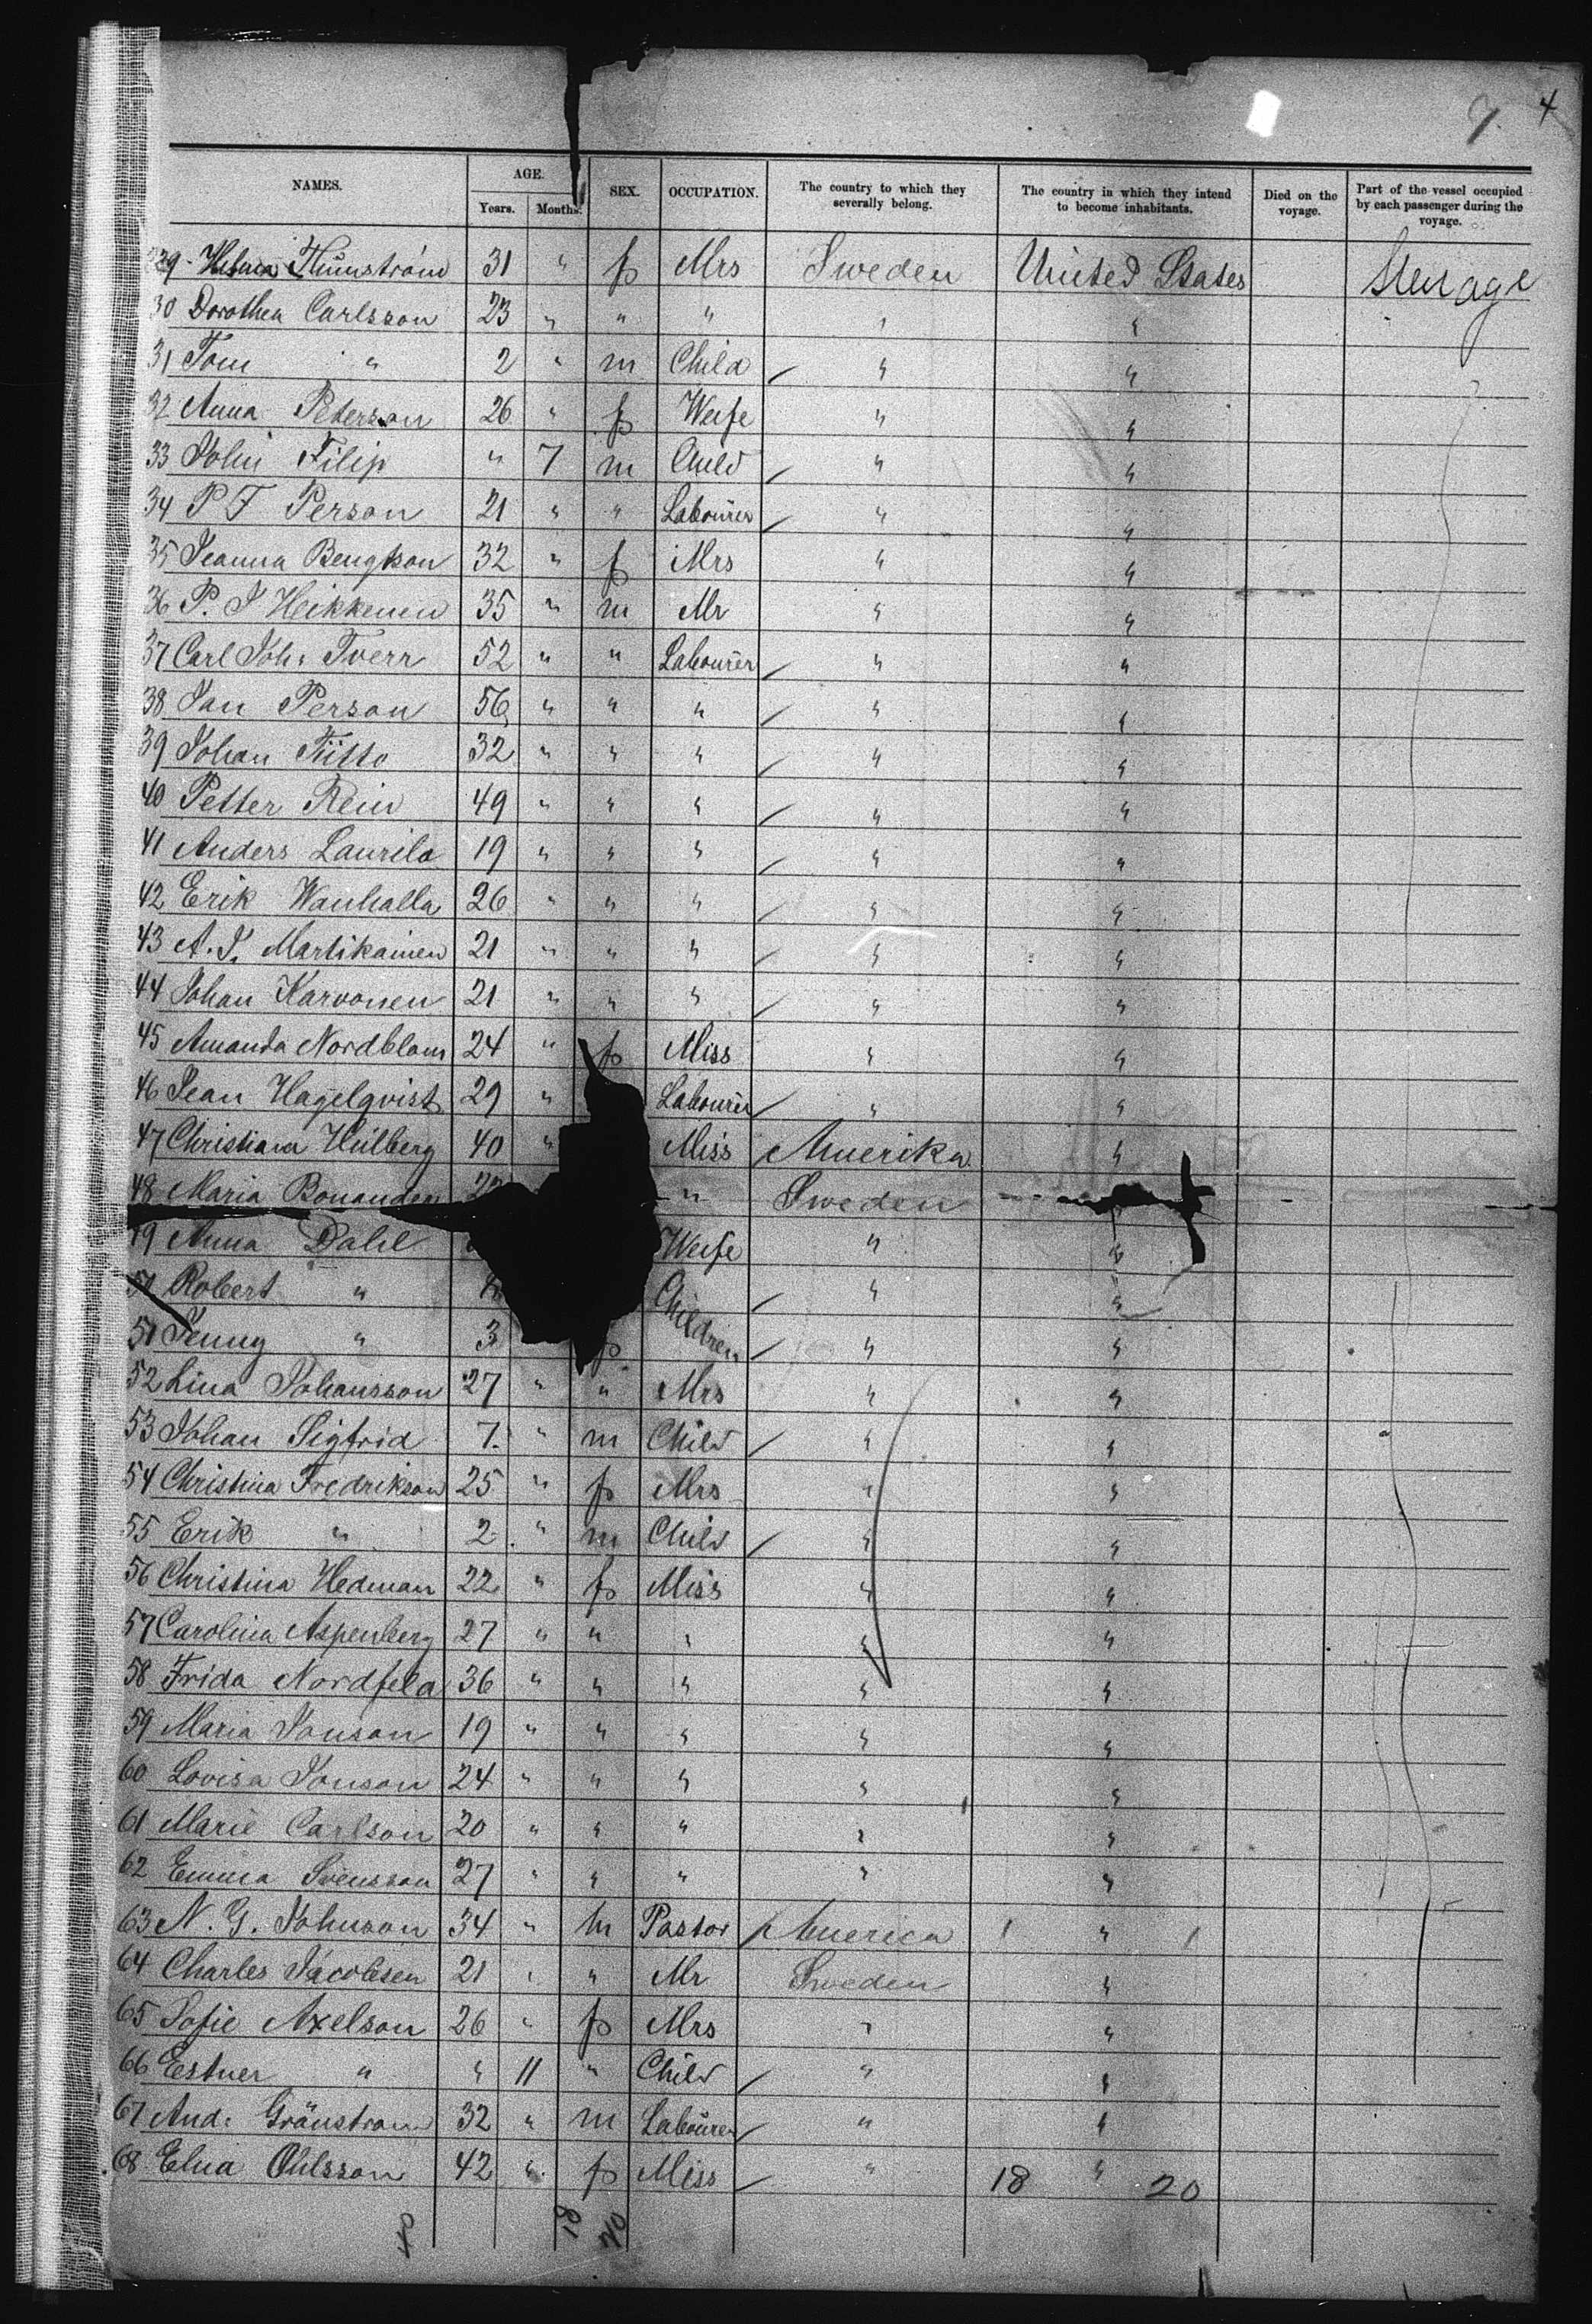 7. 4
NAMES. AGE. Years. Months. SEX. OCCUPATION. The country to which they severally belong. The country in which they intend to become inhabitants. Died on the voyage. Part of the vessel occupied by each passenger during the voyage.
29 31 " f Mrs Sweden United States Steerage
30 Dorothea Carlsson 23 " " " " "
31 Tom " 2 " m Child " "
32 Anna Peterson 26 " f Weife " "
33 John Filip " 7 m Child " "
34 P F Person 21 " " Labourer " "
35 Jeanna Bengtson 32 " f Mrs " "
36 P. J Heikkenen 35 " m Mr " "
37 Carl Joh: Tverr 52 " " Labourer " "
38 Jan Person 56 " " " " "
39 Johan Tiitto 32 " " " " "
40 Petter Rein 49 " " " " "
41 Anders Laurila 19 " " " " "
42 Erik Wanhalla 26 " " " " "
43 A. J. Martikainen 21 " " " " "
44 Johan Karvonen 21 " " " " "
45 Amanda Nordblom 24 " f Miss " "
46 Jean Hagelqvist 29 " Labourer " "
47 Christiana Hülberg 40 " Miss Amerika "
48 Maria Bonanden " Sweden
49 Anna Dahl Weife " "
50 Robert " Children " "
51 Jenny " 3 f " "
52 Lina Johansson 27 " " Mrs " "
53 Johan Sigfrid 7. " m Child " "
54 Christina Fredrikson 25 " f Mrs " "
55 Erik " 2 " m Child " "
56 Christina Hedman 22 " f Miss " "
57 Carolina Aspenberg 27 " " " " "
58 Frida Nordfeld 36 " " " " "
59 Maria Jonson 19 " " " " "
60 Lovisa Jonson 24 " " " " "
61 Marie Carlson 20 " " " " "
62 Emma Svensson 27 " " " " "
63 N. G. Johnson 34 " m Pastor America "
64 Charles Jacobsen 21 " " Mr Sweden "
65 Sofie Axelson 26 " f Mrs " "
66 Esther " " 11 " Child " "
67 And: Gränstrom 32 " m Labourer " "
68 Elna Ohlsson 42 " f Miss " "
18 20